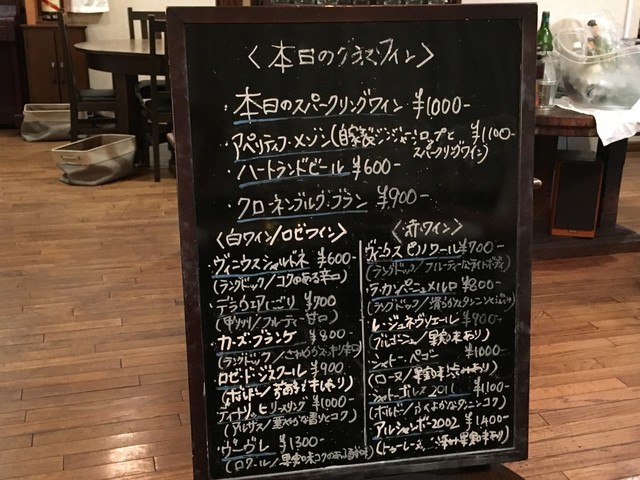 〈本日のグラスワイン〉
・本日のスパークリングワイン ¥1000-
・アペリティフ・メゾン(自家製ジンジャーシロップと ¥1100-
スパークリングワイン)
・ハートランドビール ¥600-
・クローネンブルグ・ブラン ¥900-
〈白ワイン/ロゼワイン〉
・ヴィニウスシャルドネ ¥600-
(ラングドック/コクのある辛口)
・デラウェアにごり ¥700
(甲州/フルーティー甘口)
・カーズ・ブランケ ¥800-
(ラングドック/
・ロゼ・ド・ジスクール ¥900
(ボルドー/
・ティナリッヒリースリング ¥1000-
(アルザス/華やかな香りとコク)
・ヴーヴレ ¥1300-
(ロワール/果実味コクのある
〈赤ワイン〉
ヴィニウス ピノノワール ¥700-
(ラングドック/フルーティーなライトボディ)
・ラ・カンパーニュメルロ ¥800-
(ラングドック/滑らかなタンニン
・レ・ジュネヴリエール ¥900-
(ブルゴーニュ/果実味あり)
・シャトー・ペゴー ¥1000-
(ローヌ/果実味
・シャトーボレス 2011 ¥1100-
(ボルドー/ふくよかなタンニンコク)
・アルシャンボー2002 ¥1400-
(トゥーレーヌ/ 果実味あり)